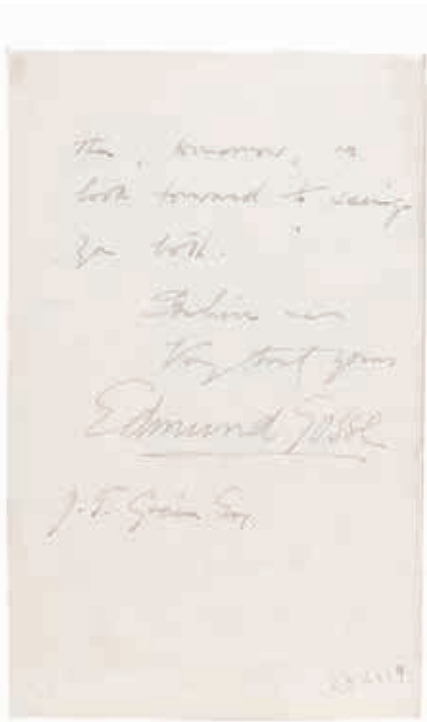 then, tomorrow, we
look forward to seeing
you both.
Believe me
Very truly yours
Edmund Gosse
J. T. Esq.